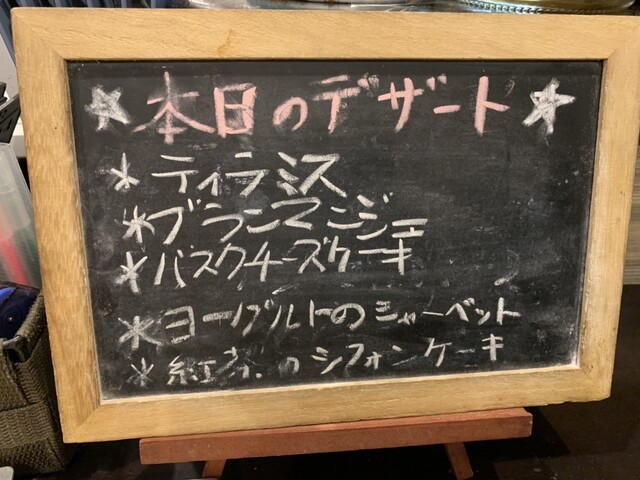 ☆本日のデザート☆
* ティラミス
* ブランマンジェ
* バスクチーズケーキ
* ヨーグルトのシャーベット
* 紅茶のシフォンケーキ